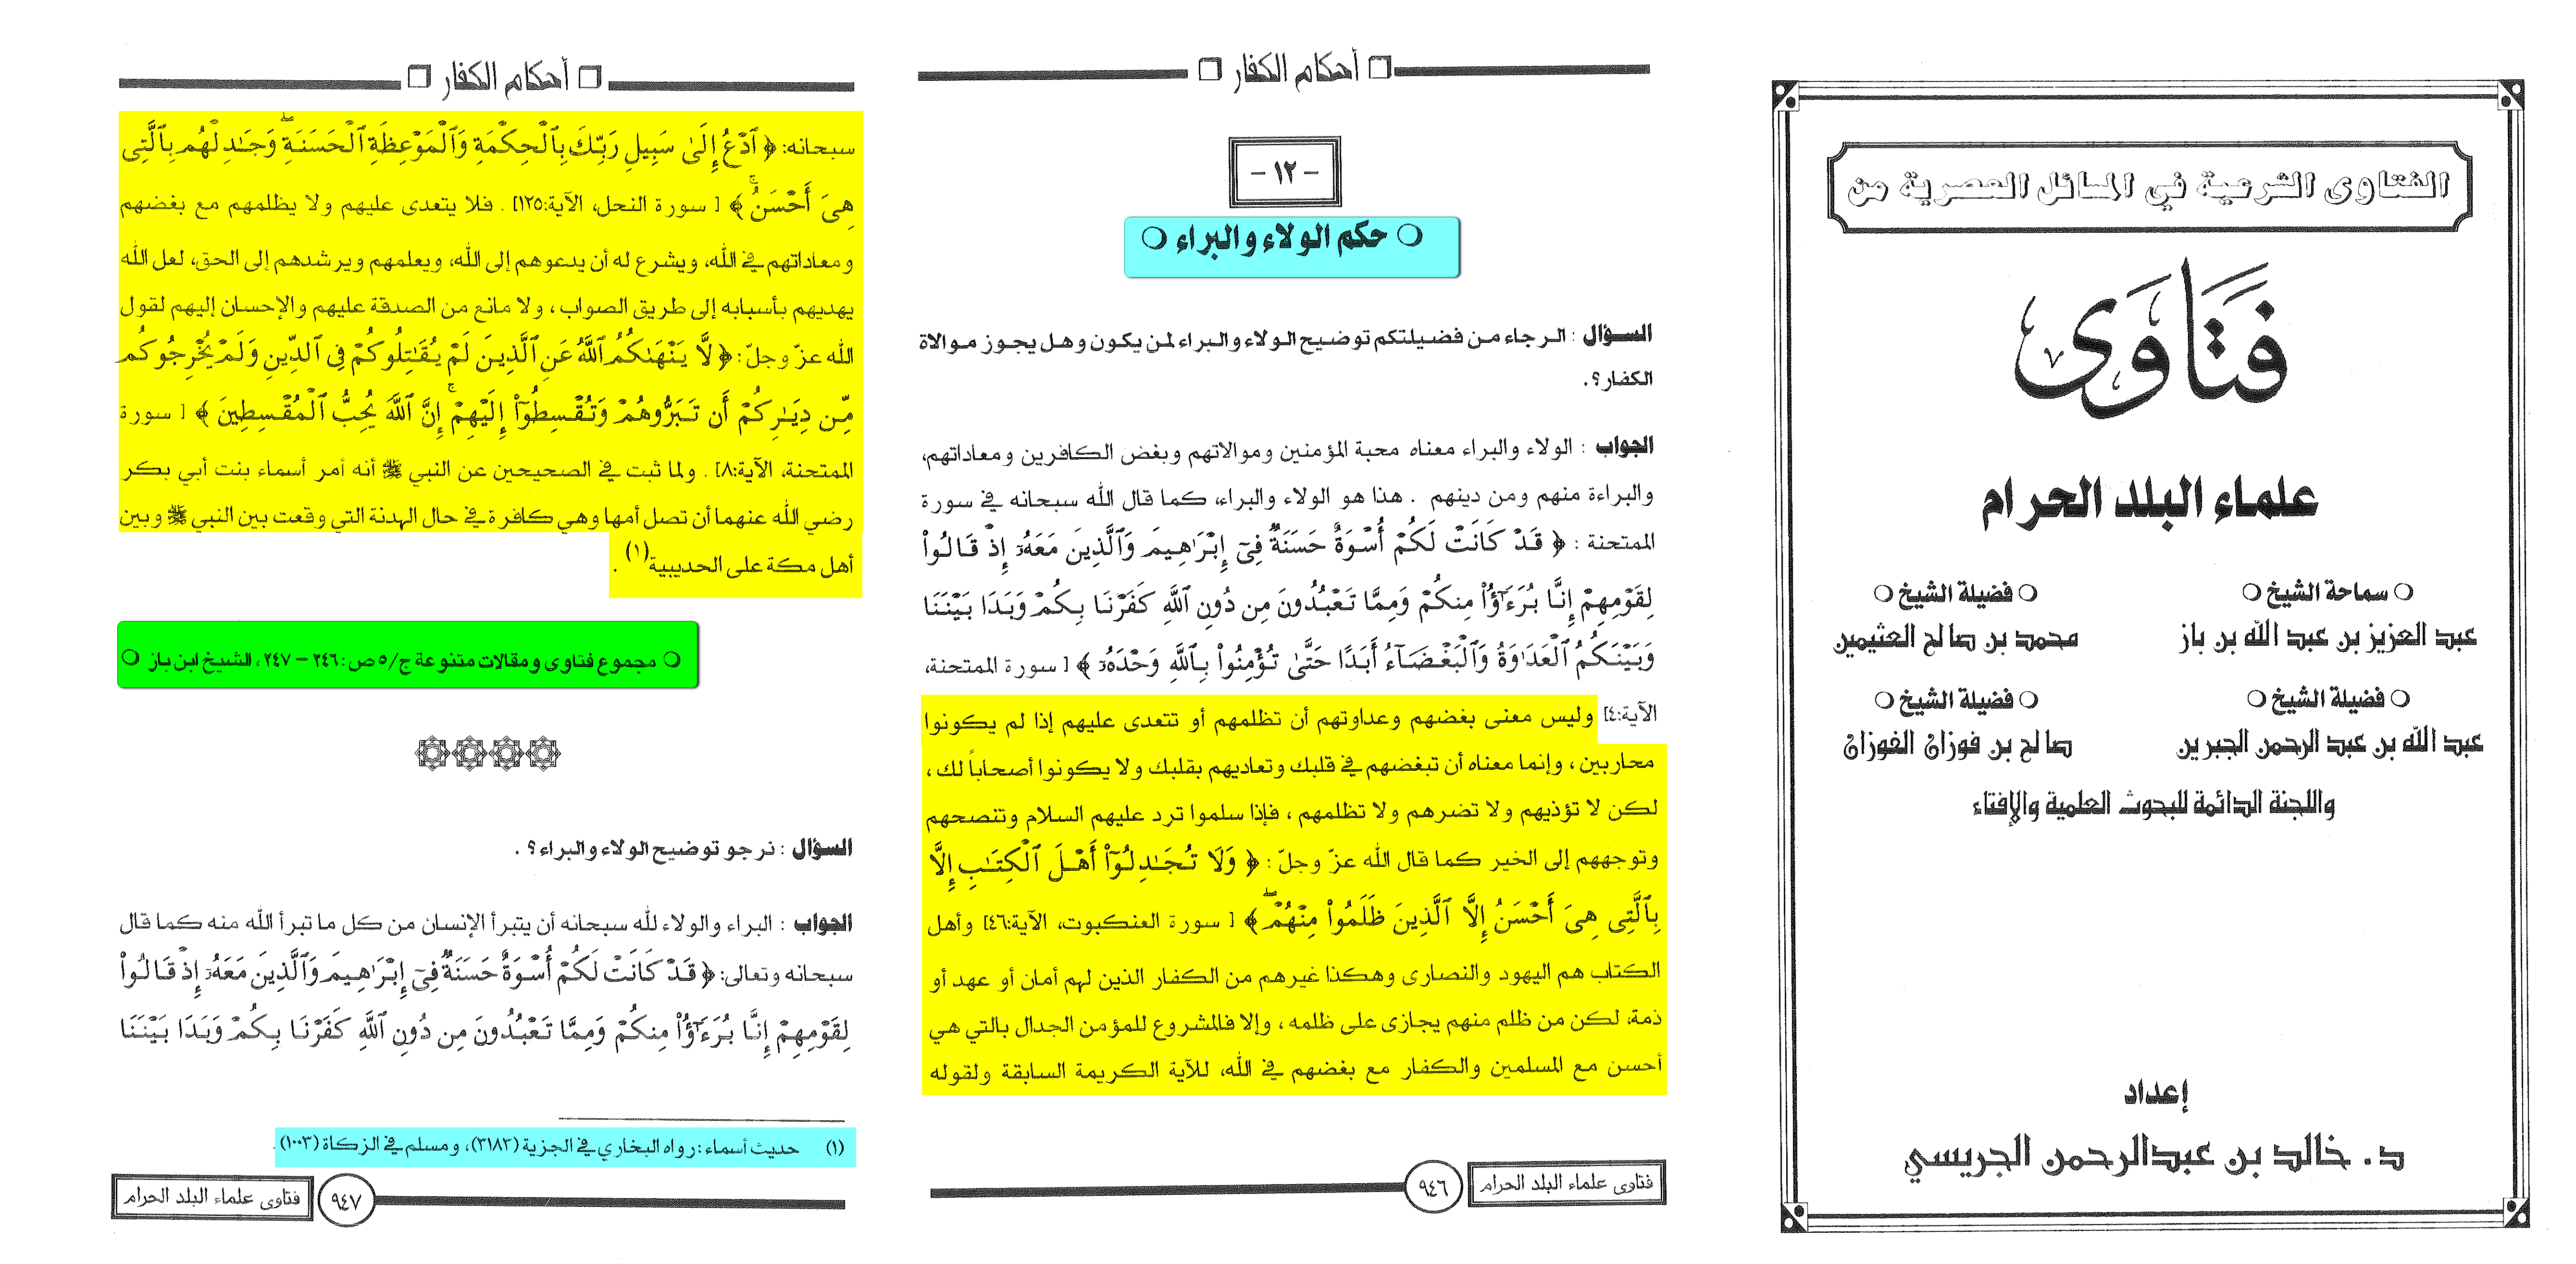 الفتاوى الشرعية في المسائل العصرية من
فتاوى
علماء البلد الحرام
○ سماحة الشيخ ○
عبد العزيز بن عبد الله بن باز
○ فضيلة الشيخ ○
محمد بن صالح العثيمين
○ فضيلة الشيخ ○
عبد الله بن عبد الرحمن الجبرين
○ فضيلة الشيخ ○
صالح بن فوزان الفوزان
واللجنة الدائمة للبحوث العلمية والإفتاء
إعداد
د. خالد بن عبدالرحمن الجريسي
□ أحكام الكفار □
- ١٢ -
○ حكم الولاء والبراء ○
السؤال : الرجاء من فضيلتكم توضيح الولاء والبراء لمن يكون وهل يجوز موالاة
الكفار؟.
الجواب : الولاء والبراء معناه محبة المؤمنين وموالاتهم وبغض الكافرين ومعاداتهم،
والبراءة منهم ومن دينهم . هذا هو الولاء والبراء، كما قال الله سبحانه في سورة
الممتحنة : ﴿ قَدْ كَانَتْ لَكُمْ أُسْوَةٌ حَسَنَةٌ فِىٓ إِبْرَٰهِيمَ وَٱلَّذِينَ مَعَهُۥٓ إِذْ قَالُوا۟
لِقَوْمِهِمْ إِنَّا بُرَءَٰٓؤُا۟ مِنكُمْ وَمِمَّا تَعْبُدُونَ مِن دُونِ ٱللَّهِ كَفَرْنَا بِكُمْ وَبَدَا بَيْنَنَا
وَبَيْنَكُمُ ٱلْعَدَٰوَةُ وَٱلْبَغْضَآءُ أَبَدًا حَتَّىٰ تُؤْمِنُوا۟ بِٱللَّهِ وَحْدَهُۥٓ ﴾ [ سورة الممتحنة،
الآية:٤] وليس معنى بغضهم وعداوتهم أن تظلمهم أو تتعدى عليهم إذا لم يكونوا
محاربين ، وإنما معناه أن تبغضهم في قلبك وتعاديهم بقلبك ولا يكونوا أصحاباً لك ،
لكن لا تؤذيهم ولا تضرهم ولا تظلمهم ، فإذا سلموا ترد عليهم السلام وتنصحهم
وتوجههم إلى الخير كما قال الله عزّ وجلّ : ﴿ وَلَا تُجَٰدِلُوٓا۟ أَهْلَ ٱلْكِتَٰبِ إِلَّا
بِٱلَّتِى هِىَ أَحْسَنُ إِلَّا ٱلَّذِينَ ظَلَمُوا۟ مِنْهُمْ ۖ ﴾ [ سورة العنكبوت، الآية:٤٦] وأهل
الكتاب هم اليهود والنصارى وهكذا غيرهم من الكفار الذين لهم أمان أو عهد أو
ذمة، لكن من ظلم منهم يجازى على ظلمه ، وإلا فالمشروع للمؤمن الجدال بالتي هي
أحسن مع المسلمين والكفار مع بغضهم في الله، للآية الكريمة السابقة ولقوله
فتاوى علماء البلد الحرام
٩٤٦
□ أحكام الكفار □
سبحانه: ﴿ ٱدْعُ إِلَىٰ سَبِيلِ رَبِّكَ بِٱلْحِكْمَةِ وَٱلْمَوْعِظَةِ ٱلْحَسَنَةِ ۖ وَجَٰدِلْهُم بِٱلَّتِى
هِىَ أَحْسَنُ ۚ ﴾ [ سورة النحل، الآية:١٢٥] . فلا يتعدى عليهم ولا يظلمهم مع بغضهم
ومعاداتهم في الله، ويشرع له أن يدعوهم إلى الله، ويعلمهم ويرشدهم إلى الحق، لعل الله
يهديهم بأسبابه إلى طريق الصواب ، ولا مانع من الصدقة عليهم والإحسان إليهم لقول
الله عزّ وجلّ: ﴿ لَّا يَنْهَىٰكُمُ ٱللَّهُ عَنِ ٱلَّذِينَ لَمْ يُقَٰتِلُوكُمْ فِى ٱلدِّينِ وَلَمْ يُخْرِجُوكُم
مِّن دِيَٰرِكُمْ أَن تَبَرُّوهُمْ وَتُقْسِطُوٓا۟ إِلَيْهِمْ ۚ إِنَّ ٱللَّهَ يُحِبُّ ٱلْمُقْسِطِينَ ﴾ [ سورة
الممتحنة، الآية:٨] . ولما ثبت في الصحيحين عن النبي ﷺ أنه أمر أسماء بنت أبي بكر
رضي الله عنهما أن تصل أمها وهي كافرة في حال الهدنة التي وقعت بين النبي ﷺ وبين
أهل مكة على الحديبية(١) .
○ مجموع فتاوى ومقالات متنوعة ج/٥ ص: ٢٤٦ – ٢٤٧، الشيخ ابن باز ○
السؤال : نرجو توضيح الولاء والبراء؟ .
الجواب : البراء والولاء لله سبحانه أن يتبرأ الإنسان من كل ما تبرأ الله منه كما قال
سبحانه وتعالى: ﴿ قَدْ كَانَتْ لَكُمْ أُسْوَةٌ حَسَنَةٌ فِىٓ إِبْرَٰهِيمَ وَٱلَّذِينَ مَعَهُۥٓ إِذْ قَالُوا۟
لِقَوْمِهِمْ إِنَّا بُرَءَٰٓؤُا۟ مِنكُمْ وَمِمَّا تَعْبُدُونَ مِن دُونِ ٱللَّهِ كَفَرْنَا بِكُمْ وَبَدَا بَيْنَنَا
(١) حديث أسماء : رواه البخاري في الجزية (٣١٨٣)، ومسلم في الزكاة (١٠٠٣) .
٩٤٧
فتاوى علماء البلد الحرام